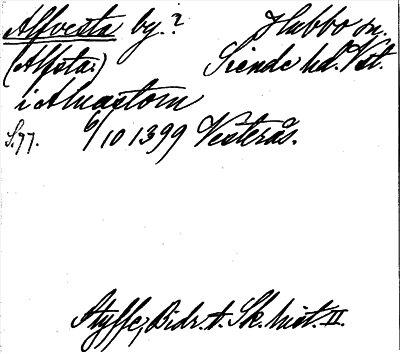 Alfvesta by.? Hubbo sn.
(Alfsta.) Siende hd. Vst.
i Aluastom
S. 77. 6/10 1399 Vesterås.
Styffe, Bidr. t. Sk. hist. II.